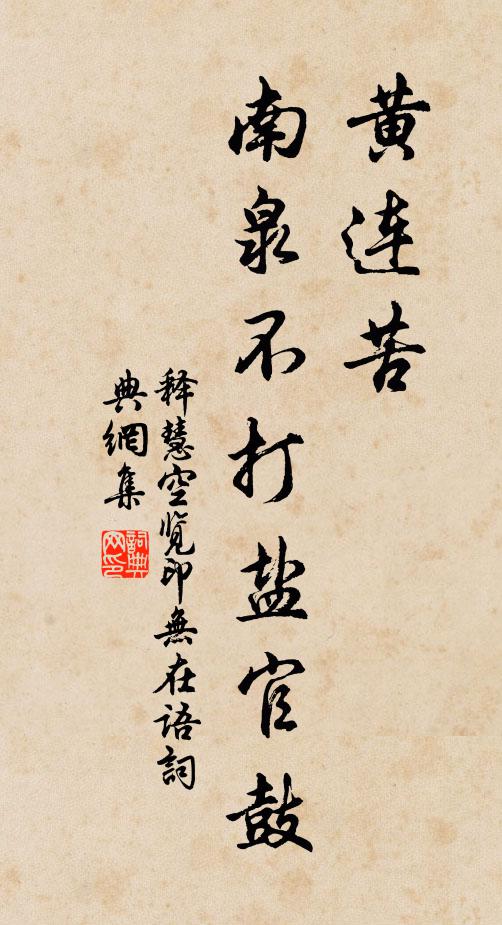 黄连苦
南泉不打盐官鼓
释慧空览印无在语词
典網集
詞典網印